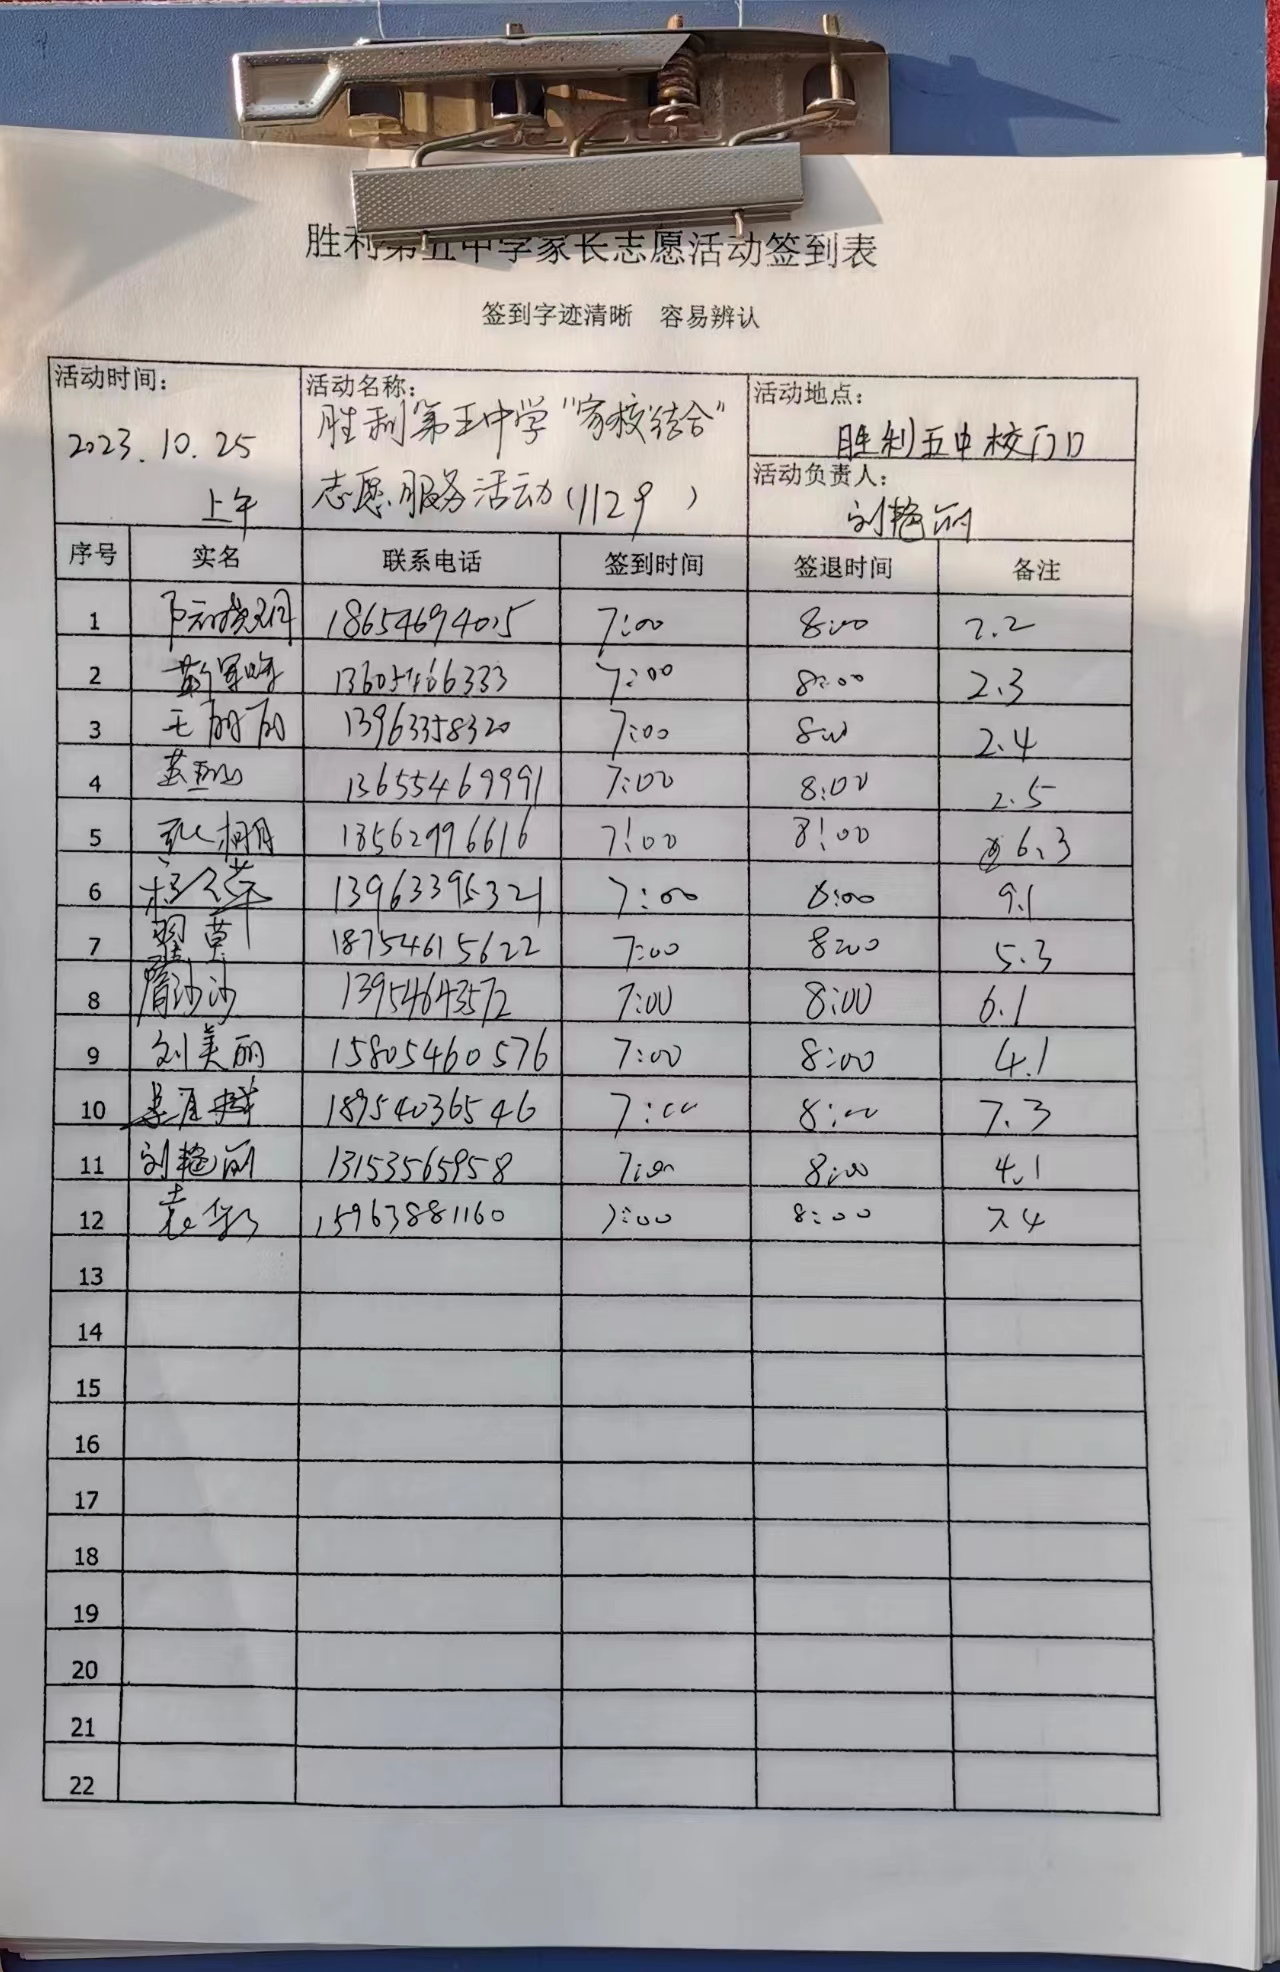 胜利第五中学家长志愿活动签到表
签到字迹清晰 容易辨认
活动时间：
2023.10.25
上午
活动名称：
胜利第五中学“家校结合”
志愿服务活动(1129)
活动地点：
胜利五中校门口
活动负责人：
刘艳丽
序号 实名 联系电话 签到时间 签退时间 备注
1 18654694015 7:00 8:00 2.2
2 13605466333 7:00 8:00 2.3
3 王丽丽 13963358320 7:00 8:00 2.4
4 13655469991 7:00 8:00 2.5
5 13562996616 7:00 8:00 6.3
6 13963395321 7:00 8:00 9.1
7 翟草 18754615622 7:00 8:00 5.3
8 沙沙 13954643572 7:00 8:00 6.1
9 刘美丽 15805460576 7:00 8:00 4.1
10 18954036546 7:00 8:00 7.3
11 刘艳丽 13153565958 7:00 8:00 4.1
12 15963881160 7:00 8:00 7.4
13
14
15
16
17
18
19
20
21
22